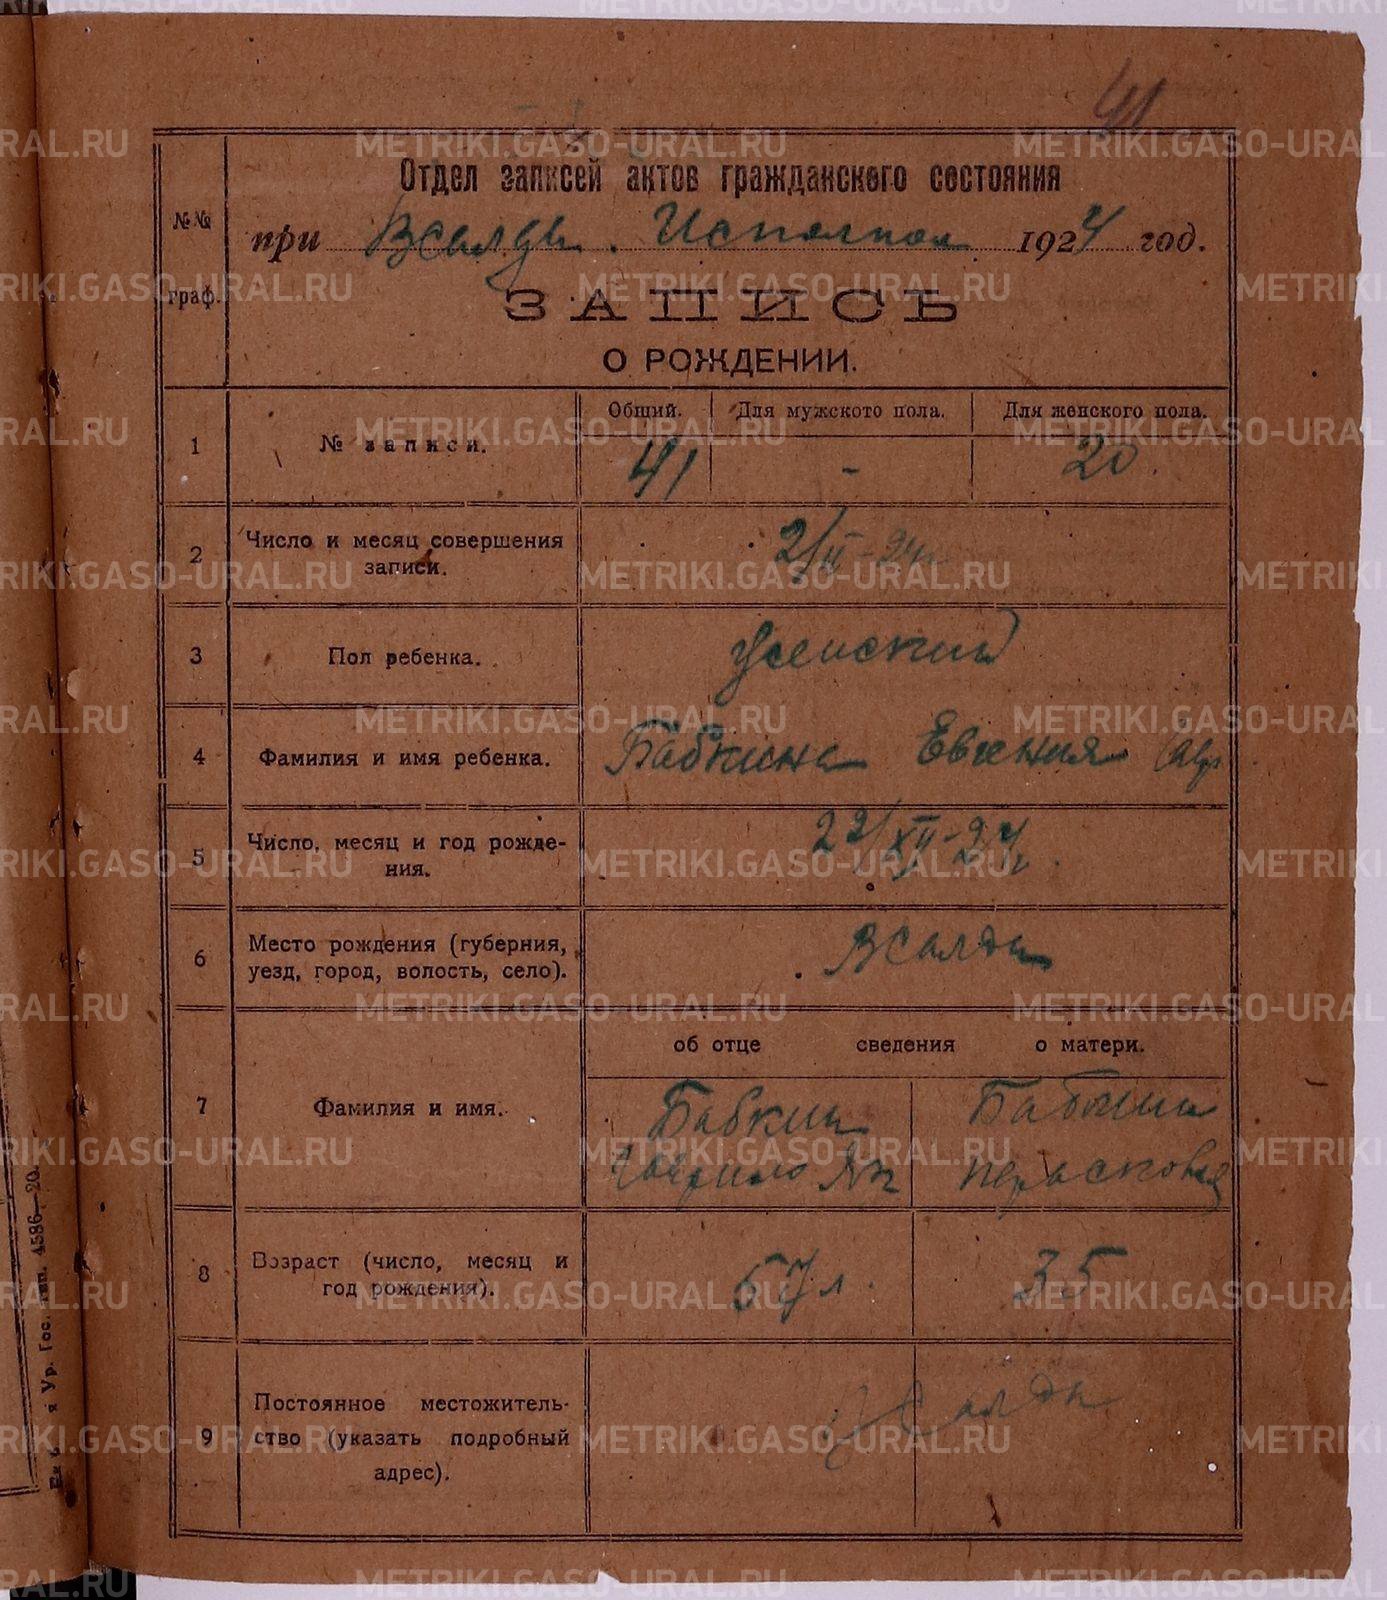 41
Отдел записей актов гражданского состояния
№№ граф.
при ВСалди. Исполком 1924 год.
ЗАПИСЬ
О РОЖДЕНИИ.
1 № записи. Общий. Для мужского пола. Для женского пола.
41 - 20.
2 Число и месяц совершения записи. 2/II-24г
3 Пол ребенка. Женский
4 Фамилия и имя ребенка. Бабкина Евгения
5 Число, месяц и год рождения. 22/XII-24г.
6 Место рождения (губерния, уезд, город, волость, село). ВСалда
об отце сведения о матери.
7 Фамилия и имя. Бабкин Бабкина
Гаврило Як Парасковья
8 Возраст (число, месяц и год рождения). 57 л. 35
9 Постоянное местожительство (указать подробный адрес). ВСалда
4586—20.
METRIKI.GASO-URAL.RU